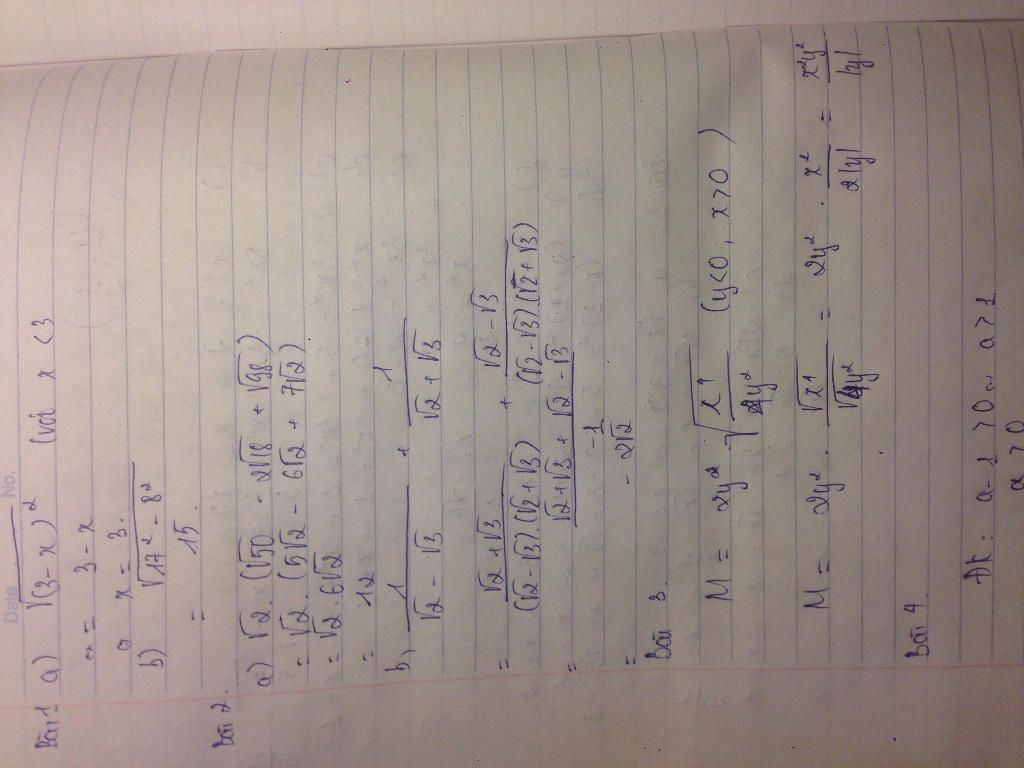 Date No.
Bài 1 a) √(3-x)² (với x<3
= 3-x
x = 3.
b) √17² - 8²
= 15.
Bài 2.
a) √2.(√50 - 2√18 + √98)
= √2.(5√2 - 6√2 + 7√2)
= √2.6√2
= 12
b, 1/(√2-√3) + 1/(√2+√3)
= (√2+√3)/((√2-√3).(√2+√3)) + (√2-√3)/((√2-√3)(√2+√3))
= (√2+√3+√2-√3)/-1
= -2√2
Bài 3.
M = 2y².√(x⁴/4y²) (y<0, x>0)
M = 2y².√x⁴/√4y² = 2y².x²/2|y| = x²y²/|y|
Bài 4.
ĐK: a-1>0 a>1
a>0